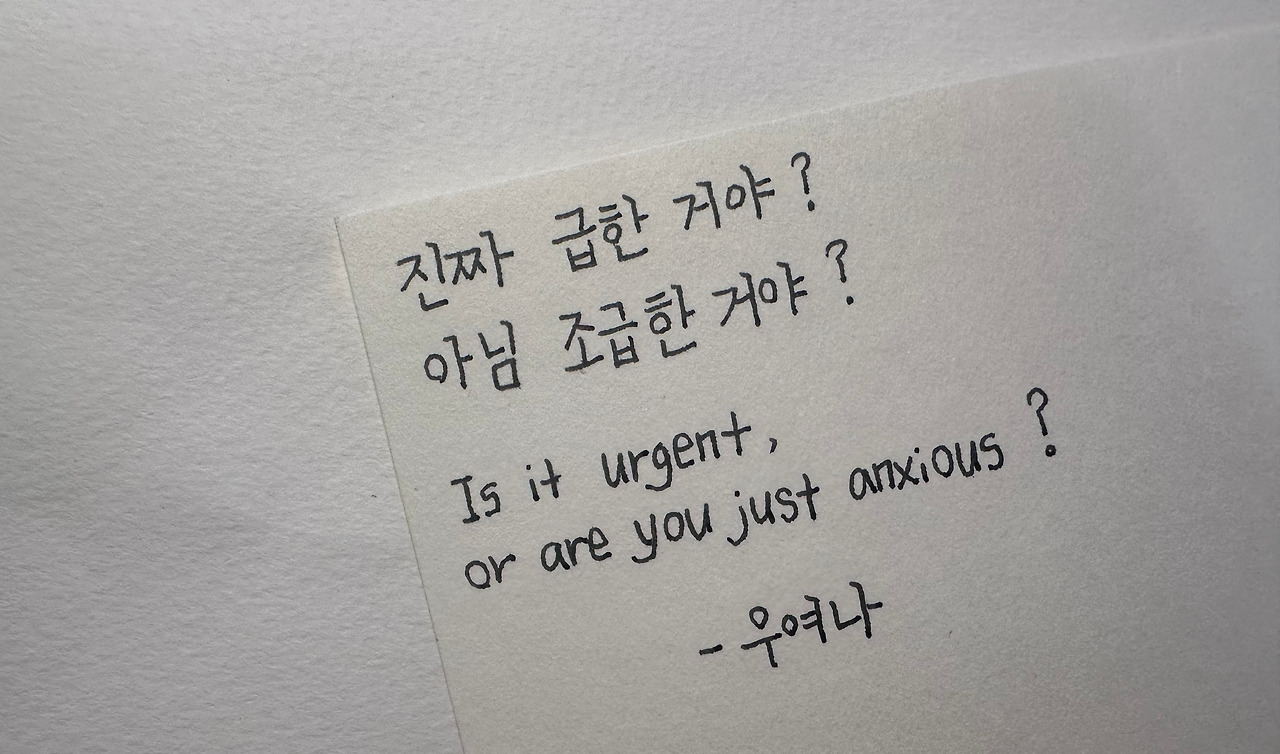 진짜 급한 거야?
아님 조급한 거야?
Is it urgent,
or are you just anxious?
- 우여나